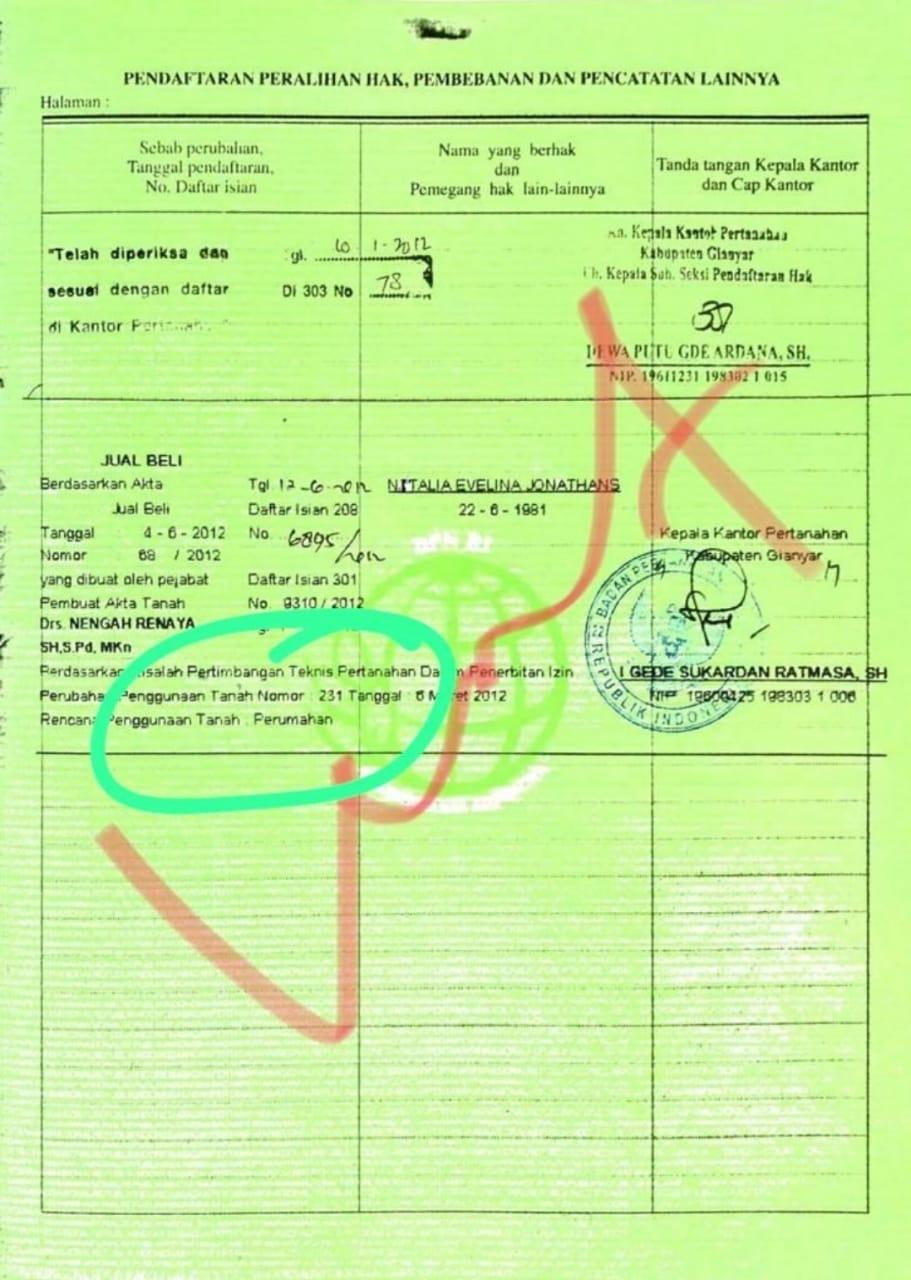 PENDAFTARAN PERALIHAN HAK, PEMBEBANAN DAN PENCATATAN LAINNYA
Halaman :
Sebab perubahan,
Tanggal pendaftaran,
No. Daftar isian
Nama yang berhak
dan
Pemegang hak lain-lainnya
Tanda tangan Kepala Kantor
dan Cap Kantor
"Telah diperiksa dan gl. 10 1-2012
sesuai dengan daftar DI 303 No 78
di Kantor
Kepala Kantor Pertanahan
Kabupaten Gianyar
Kepala Sub. Seksi Pendaftaran Hak
DEWA PUTU GDE ARDANA, SH.
NIP. 19611231 198302 1 015
JUAL BELI
Berdasarkan Akta
Jual Beli
Tanggal 4 - 6 - 2012
Nomor 68 / 2012
yang dibuat oleh pejabat
Pembuat Akta Tanah
Drs. NENGAH RENAYA
SH,S.Pd, MKn
Tgl. 12-6-2012
Daftar Isian 208
No. 6895/2012
Daftar Isian 301
No. 9310 / 2012
NITALIA EVELINA JONATHANS
22 - 6 - 1981
Kepala Kantor Pertanahan
Kabupaten Gianyar
BPN RI
BADAN
REPUBLIK INDONESIA
I GEDE SUKARDAN RATMASA, SH
NIP 198303 1 006
Berdasarkan Risalah Pertimbangan Teknis Pertanahan Dalam Penerbitan Izin
Perubahan Penggunaan Tanah Nomor : 231 Tanggal : 6 Maret 2012
Rencana Penggunaan Tanah : Perumahan